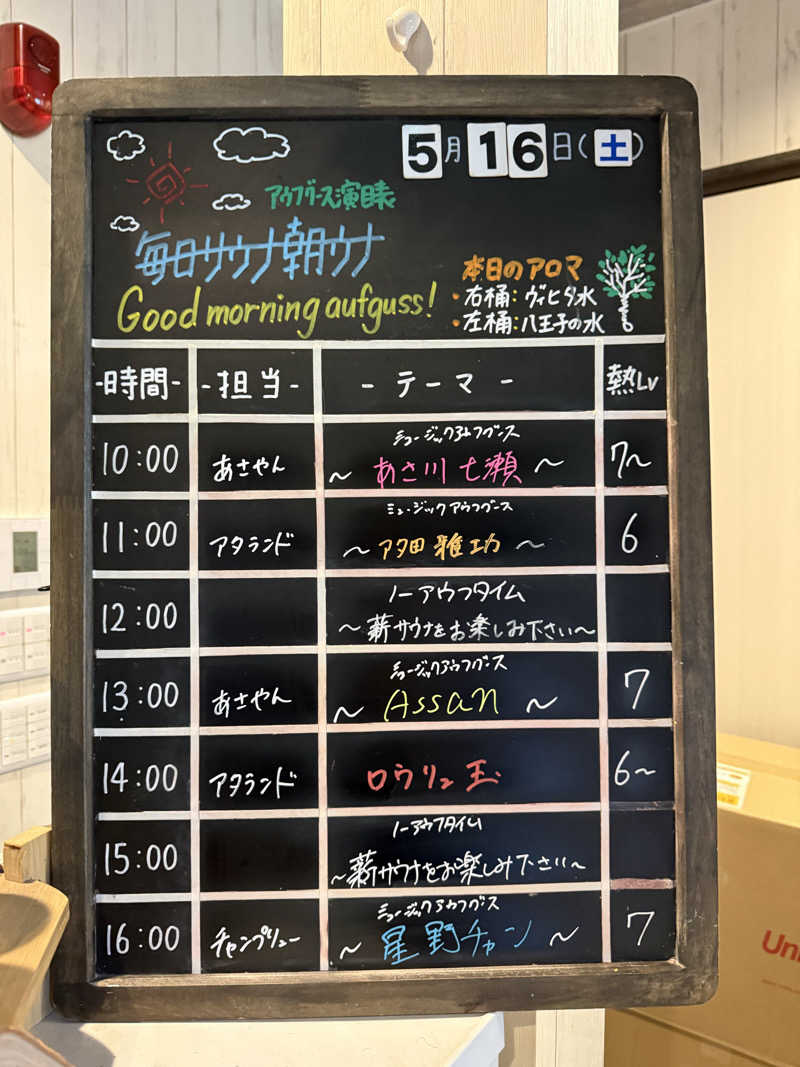 5月16日(土)
アウフグース演目表
毎日サウナ朝ウナ
Good morning aufguss!
本日のアロマ
・右桶：ヴィヒタ水
・左桶：八王子の水
-時間- -担当- -テーマ- 熱Lv
ミュージックアウフグース
10:00 あさやん ～あさ川七瀬～ 7～
ミュージックアウフグース
11:00 アタランド ～アタ田雅功～ 6
ノーアウフタイム
12:00 ～薪サウナをお楽しみ下さい～
ミュージックアウフグース
13:00 あさやん ～Assan～ 7
14:00 アタランド ロウリュ玉 6～
ノーアウフタイム
15:00 ～薪サウナをお楽しみ下さい～
ミュージックアウフグース
16:00 チャンプリュー ～星野チャン～ 7
Uni